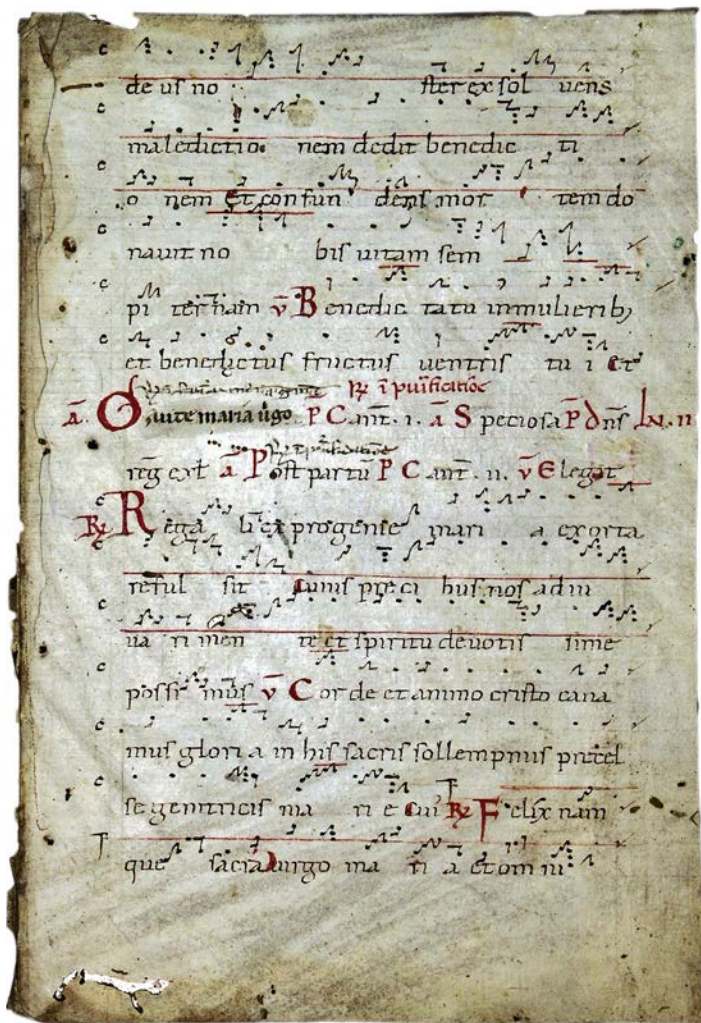 de us no ster ex sol uens
maledictio nem dedit benedic ti
o nem Et con fun dens mor tem do
nauit no bis uitam sem
pi ter nam v̄ Benedic ta tu in mulierib;
et benedictus fructus uentris tu i et
R̨ ī purificatiōe
ā. Gaute maria ūgo P̄ Cant̄. i. ā Speciosa P̄ dn̄s
reḡ ext ā Post partū P̄ Cant̄. ii. v̄ Elegit
R̨ Rega li ex progenie mari a exorta
reful sit Cuius preci bus nos ad iu
ua ri men te et spiritu deuotis sime
possi mus v̄ Corde et animo cristo cana
mus glori a in his sacris sollempniis precel
se genitricis ma ri e Cui R̨ Felix nam
que sacra uirgo ma ri a et om ni